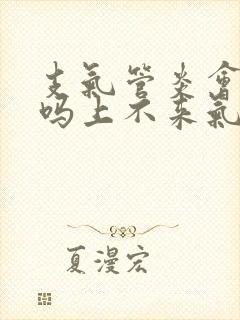 支氣管炎會
吗上不来氣
夏漫宏